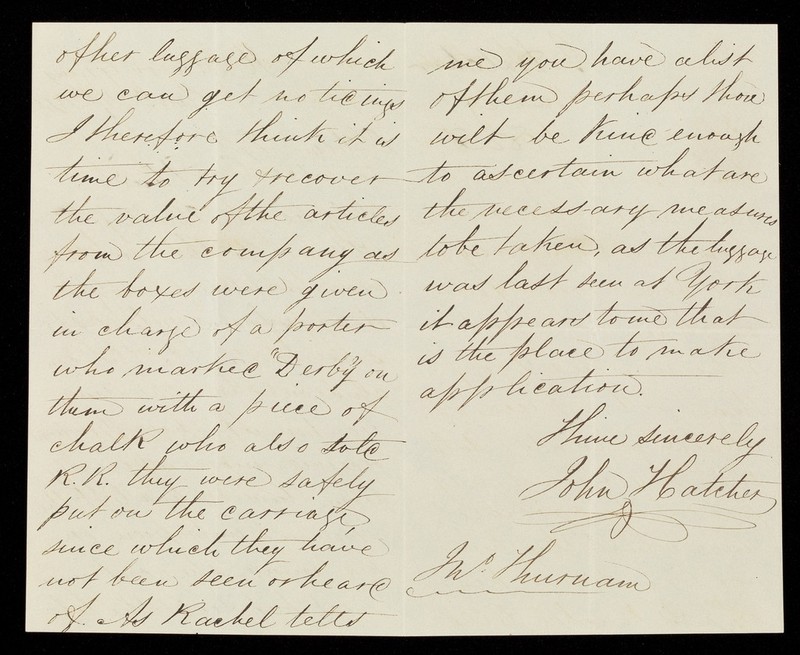 of her luggage of which
we can get no tidings
I therefore think it is
time to try & recover
the value of the articles
from the company as
the boxes were given
in charge of a porter
who marked "Derby" on
them with a piece of
chalk who also told
R. R. they were safely
put on the carriage,
since which they have
not been seen or heard
of. As Rachel tells
me you have a list
of them perhaps thou
wilt be kind enough
to ascertain what are
the necessary measures
to be taken, as the luggage
was last seen at York
it appears to me that
is the place to make
application.
Thine sincerely
John Hatcher
Jno. Thurnam